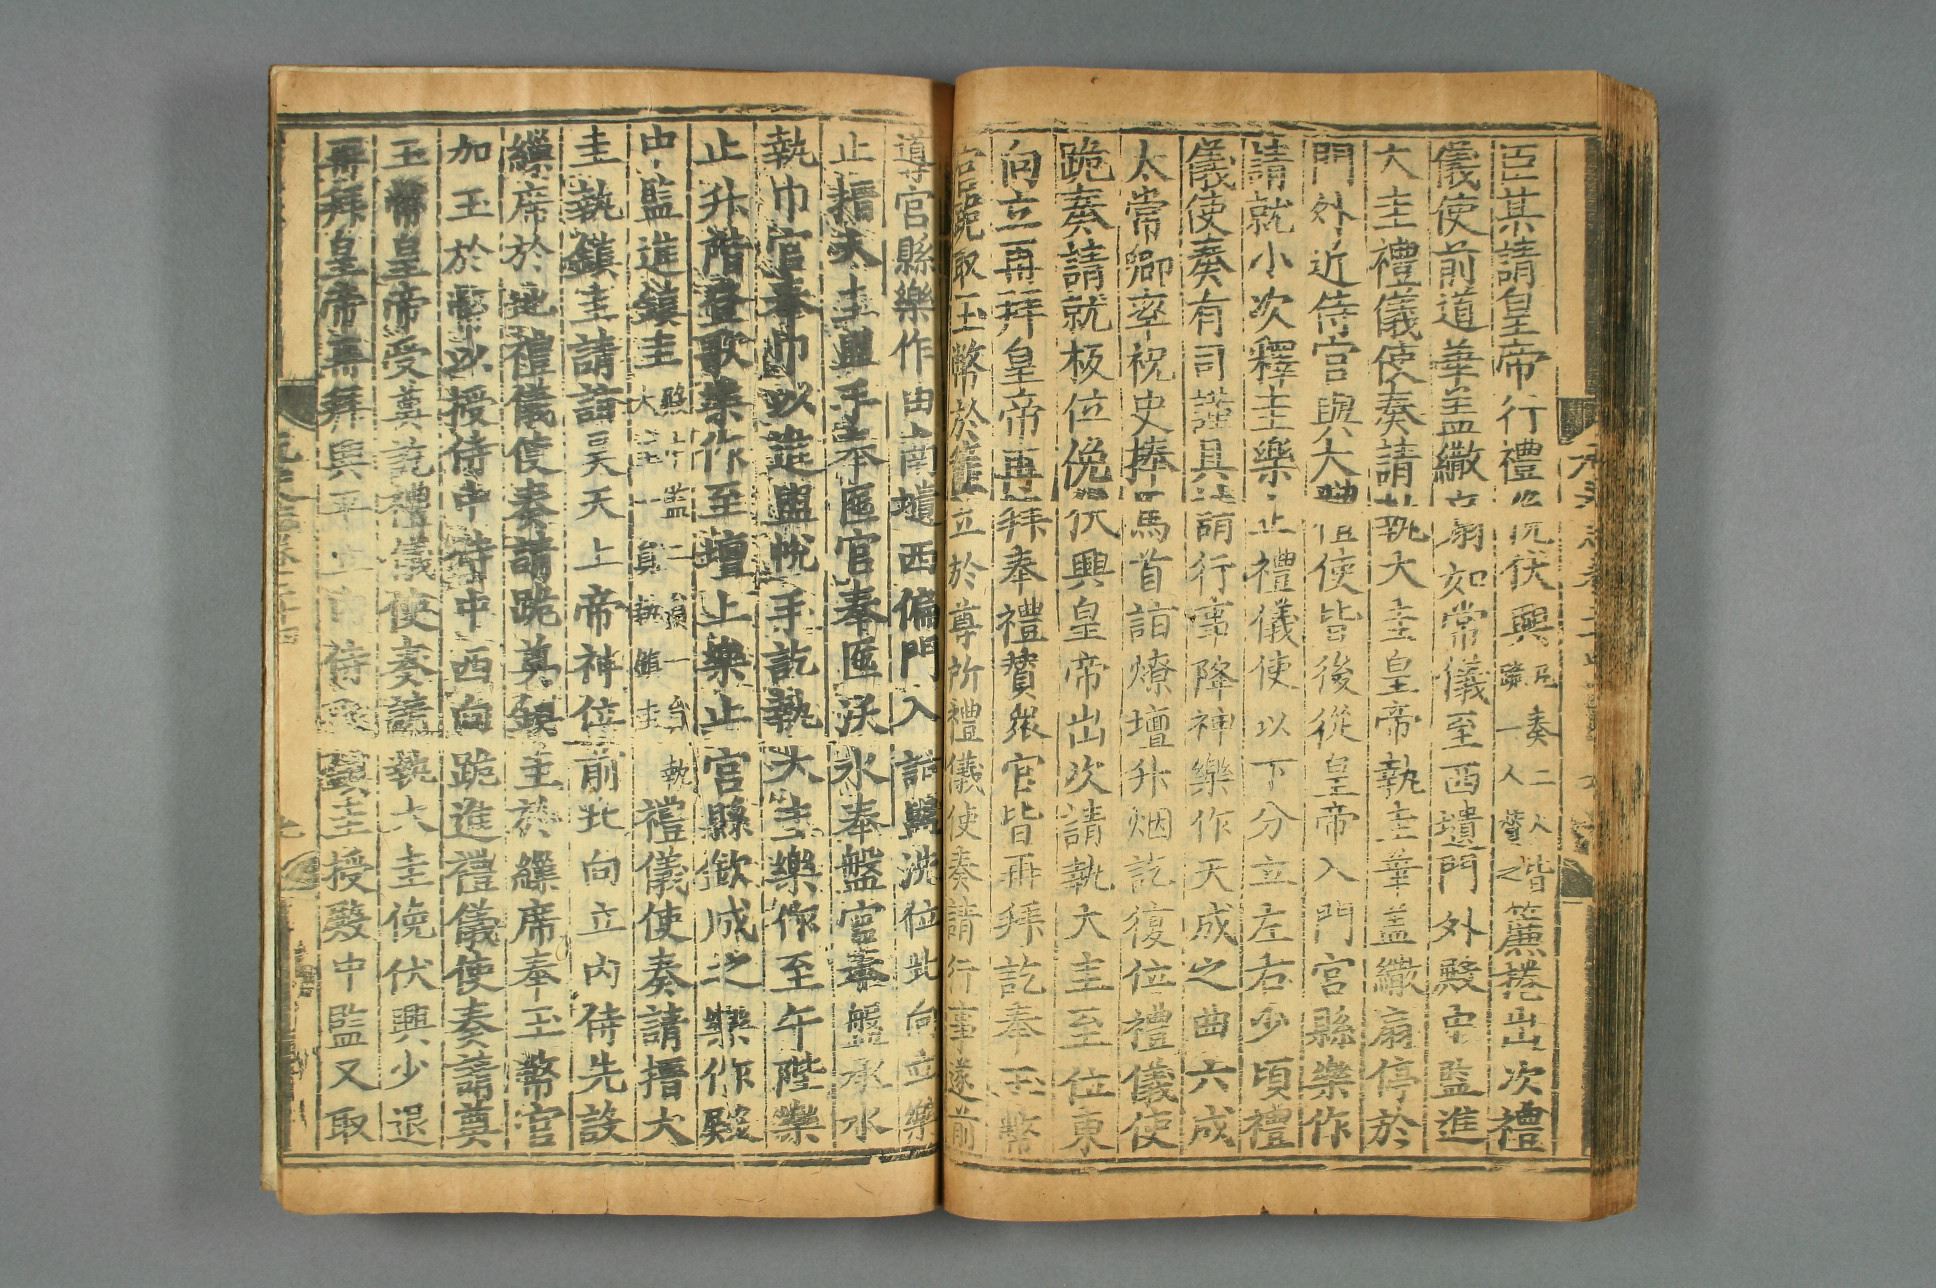 臣某請皇帝行禮俛伏興凡奏二人皆跪一人贊之簾捲出次禮
儀使前道華盖繖扇如常儀至西壝門外殿中監進
大圭禮儀使奏請執大圭皇帝執圭華盖繖扇停於
門外近侍官與大禮使皆後從皇帝入門宮縣樂作
請就小次釋圭樂止禮儀使以下分立左右少頃禮
儀使奏有司謹具請行事降神樂作天成之曲六成
太常卿率祝史捧馬首詣燎壇升烟訖復位禮儀使
跪奏請就板位俛伏興皇帝出次請執大圭至位東
向立再拜皇帝再拜奉禮贊衆官皆再拜訖奉玉幣
官跪取玉幣於篚立於尊所禮儀使奏請行事遂前
導官縣樂作由南壝西偏門入詣盥洗位北向立樂
止搢大圭盥手奉匜官奉匜沃水奉盤官奉盤承水
執巾官奉巾以進盥帨手訖執大圭樂作至午陛樂
止升階登歌樂作至壇上樂止宮縣欽成之樂作殿
中監進鎮圭殿中監二員一員執大圭一員執鎮圭禮儀使奏請搢大
圭執鎮圭請詣昊天上帝神位前北向立內侍先設
繅席於地禮儀使奏請跪奠鎮圭於繅席奉玉幣官
加玉於幣以授侍中侍中西向跪進禮儀使奏請奠
玉幣皇帝受奠訖禮儀使奏請執大圭俛伏興少退
再拜皇帝再拜興平立內侍取鎮圭授殿中監又取
元史志卷二十四